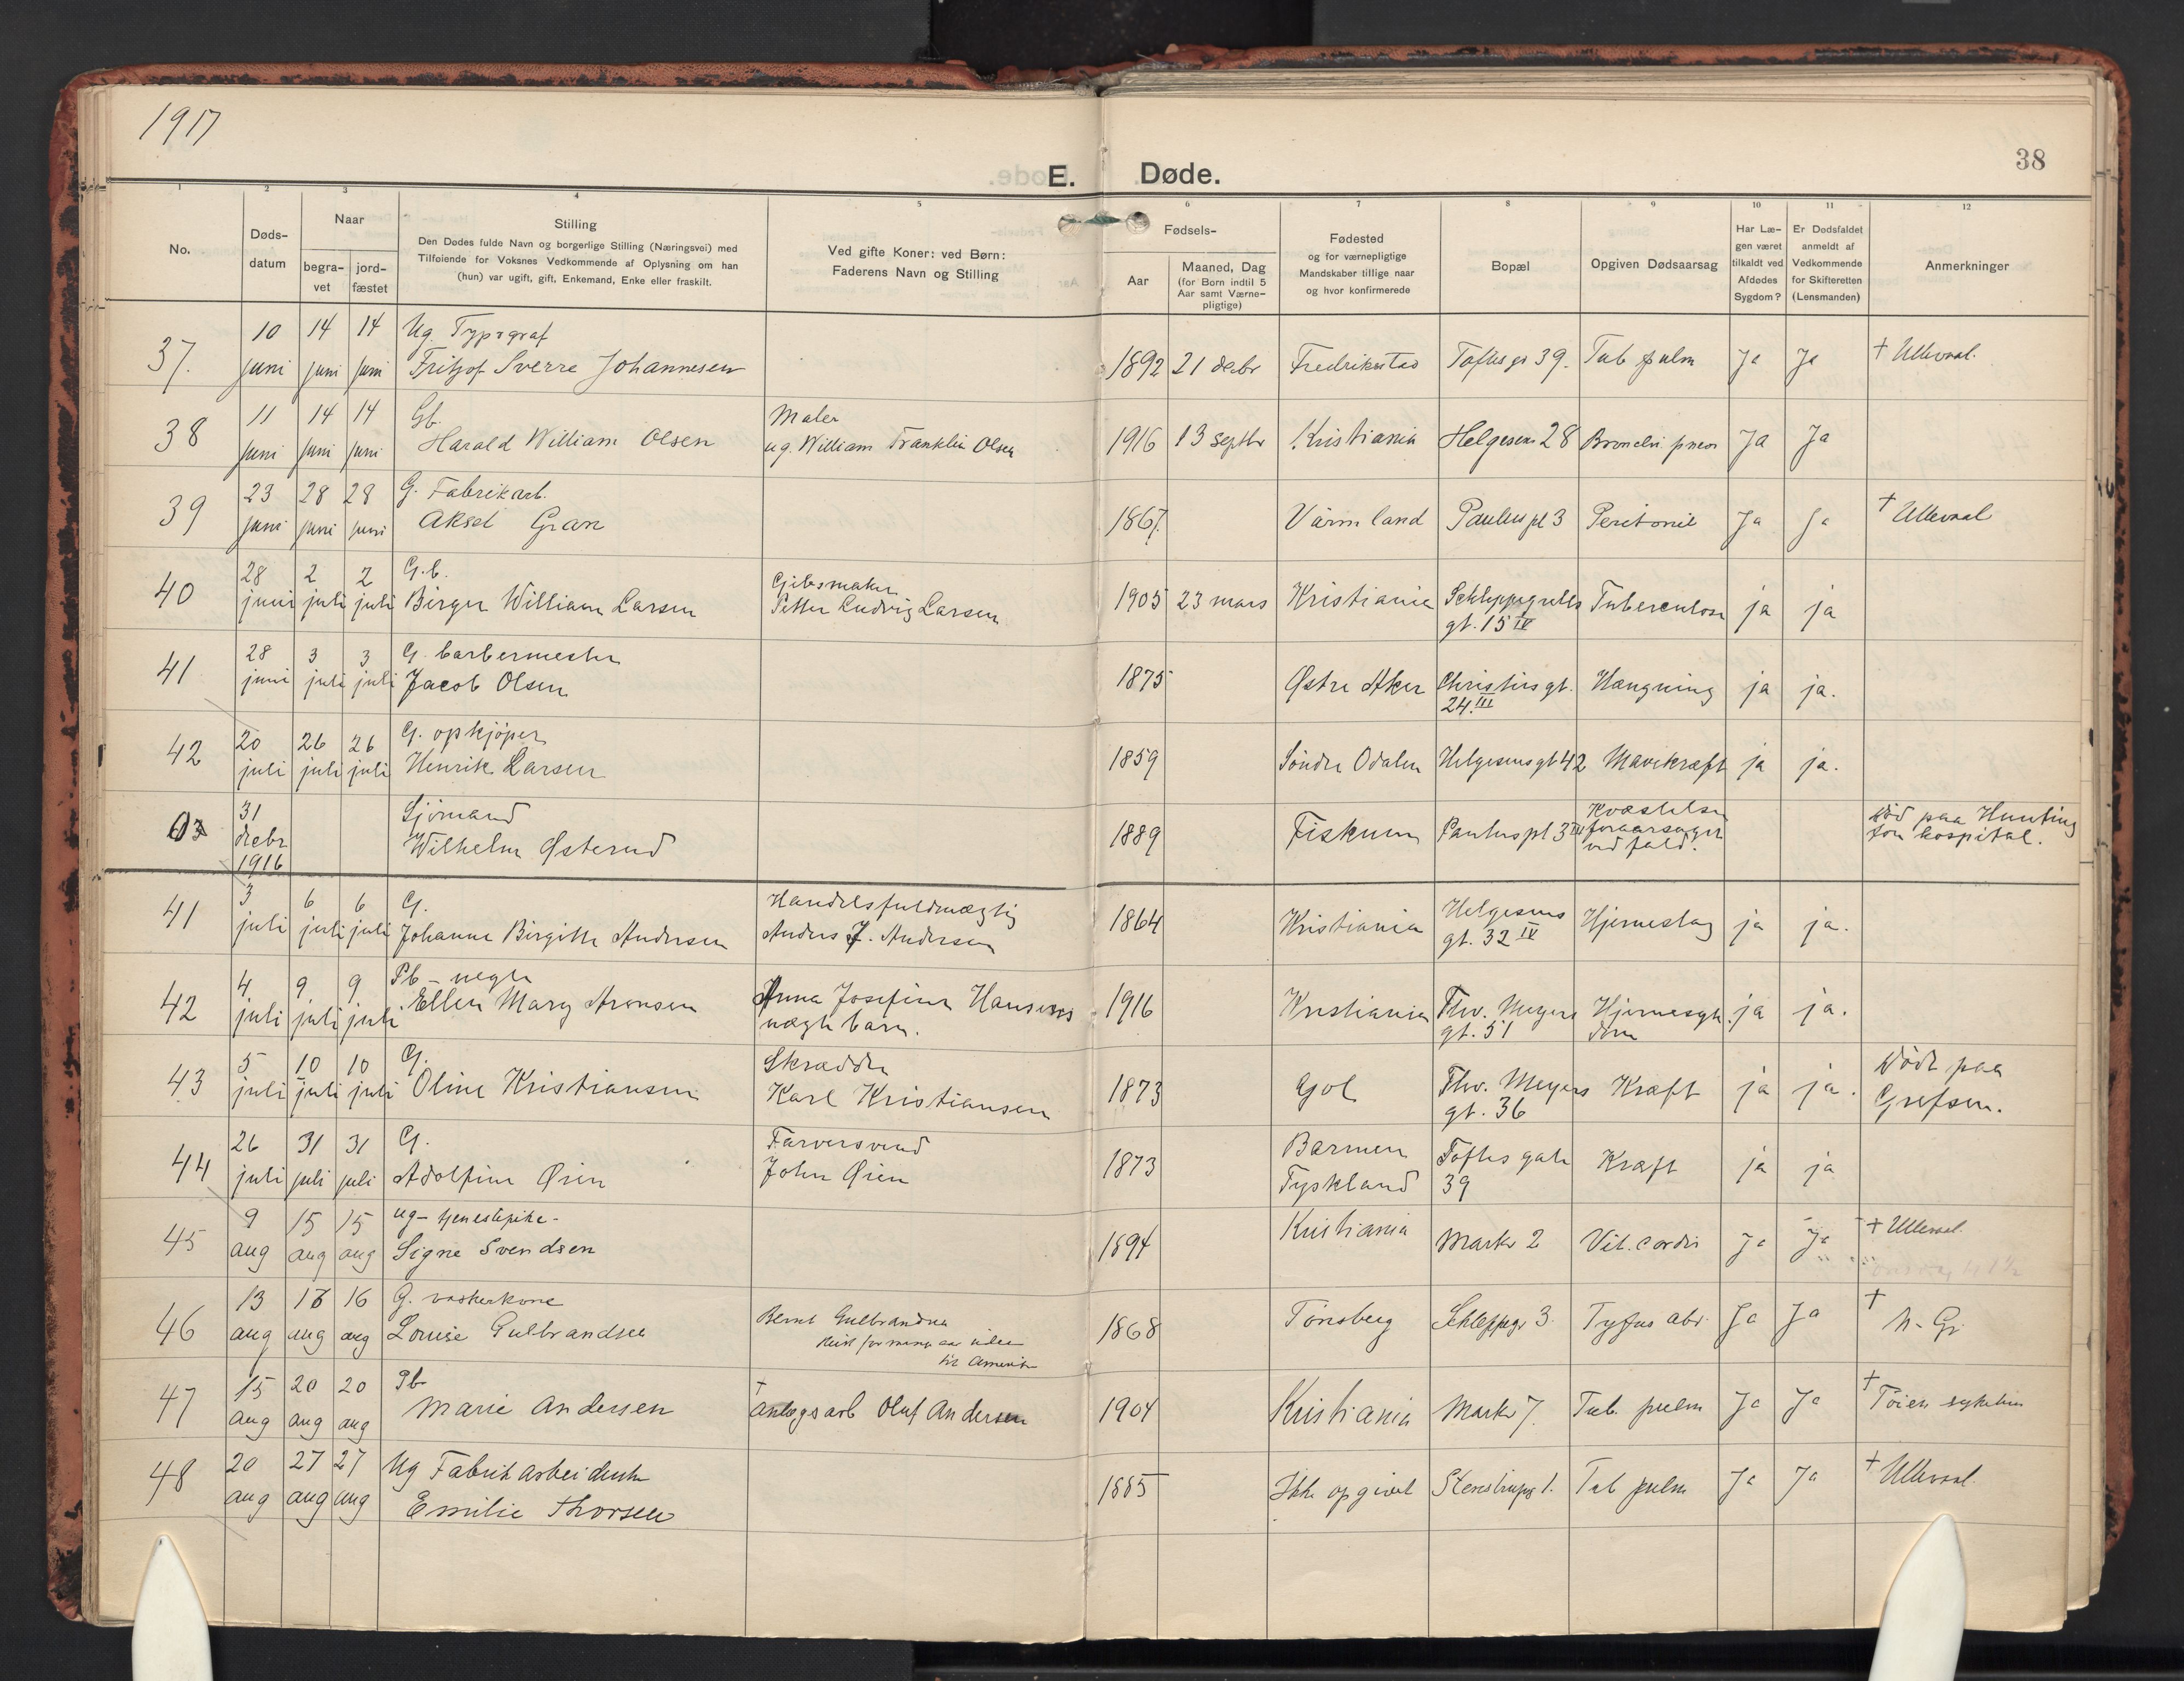 1917
38
E. Døde.
1 2 3 4 5 6 7 8 9 10 11 12
No.
Døds-datum
Naar
begra-vet
jord-fæstet
Stilling
Den Dødes fulde Navn og borgerlige Stilling (Næringsvei) med
Tilføiende for Voksnes Vedkommende af Oplysning om han
(hun) var ugift, gift, Enkemand, Enke eller fraskilt.
Ved gifte Koner: ved Børn:
Faderens Navn og Stilling
Fødsels-
Aar
Maaned, Dag
(for Børn indtil 5
Aar samt Værne-
pligtige)
Fødested
og for værnepligtige
Mandskaber tillige naar
og hvor konfirmerede
Bopæl
Opgiven Dødsaarsag
Har Læ-
gen været
tilkaldt ved
Afdødes
Sygdom?
Er Dødsfaldet
anmeldt af
Vedkommende
for Skifteretten
(Lensmanden)
Anmerkninger
37. 10 juni 14 juni 14 juni Ug. Typograf
Fritjof Sverre Johannesen 1892 21 decbr Fredrikstad Toftesgt 39. Tub pulm Ja Ja † Ullevaal.
38 11 juni 14 juni 14 juni Gb.
Harald William Olsen Maler
ug. William Franklin Olsen 1916 13 septbr Kristiania Helgesens 28 Bronchi pneu Ja Ja
39 23 juni 28 juni 28 juni G. Fabrikarb.
Aksel Gran 1867. Värmland Paulus pl 3 Peritonit Ja Ja † Ullevaal
40 28 juni 2 juli 2 juli G.b.
Birger William Larsen Gibsmaker
Petter Ludvig Larsen 1905 23 mars Kristiania Schleppegrells
gt. 15 IV Tuberculose ja ja
41 28 juni 3 juli 3 juli G. barbermester
Jacob Olsen 1875 Østre Aker Christies gt.
24 III Hængning ja ja.
42 20 juli 26 juli 26 juli G. opkjøper
Henrik Larsen 1859 Söndre Odalen Helgesensgt 42 Mavekræft ja ja.
31 decbr 1916 Sjömand
Wilhelm Østerud 1889 Fiskum Paulus pl 3 IV Kvæstelse
foraarsaget
ved fald. Död paa Hunting
ton hospital.
41 3 juli 6 juli 6 juli G.
Johanne Birgitte Andersen Handelsfuldmægtig
Anders J. Andersen 1864 Kristiania Helgesens
gt. 32 IV Hjerneslag ja ja.
42 4 juli 9 juli 9 juli Pb – uegte
Ellen Mary Aronsen Anna Josefine Hansens
uægte barn. 1916 Kristiania Thv. Meyers
gt. 51 Hjernesyk
dom ja ja.
43 5 juli 10 juli 10 juli G.
Oline Kristiansen Skrædder
Karl Kristiansen 1873 Gol Thv. Meyers
gt. 36 Kræft ja ja. Döde paa
Grefsen.
44 26 juli 31 juli 31 juli G.
Adolfine Øien Farversvend
John Øien 1873 Barmen
Tyskland Toftes gate
39 Kræft ja ja
45 9 aug 15 aug 15 aug ug – tjenestepike –
Signe Svendsen 1894 Kristiania Markv 2 Vit. cordis Ja Ja † Ullevaal
46 13 aug 16 aug 16 aug G. vaskerkone
Louise Gulbrandsen Bernt Gulbrandsen
reist for mange aar siden
til Amerika 1868 Tønsberg Schleppegr 3. Tyfus abd. Ja Ja † N. Gr.
47 15 aug 20 aug 20 aug Pb
Marie Andersen † Anlægsarb Oluf Andersen 1904 Kristiania Markv 7. Tub. pulm Ja Ja † Töien sykehus
48 20 aug 27 aug 27 aug Ug Fabrikarbeiderske
Emilie Thorsen 1885 Ikke opgivet Stenstrupsg 1. Tub pulm Ja Ja † Ullevaal.